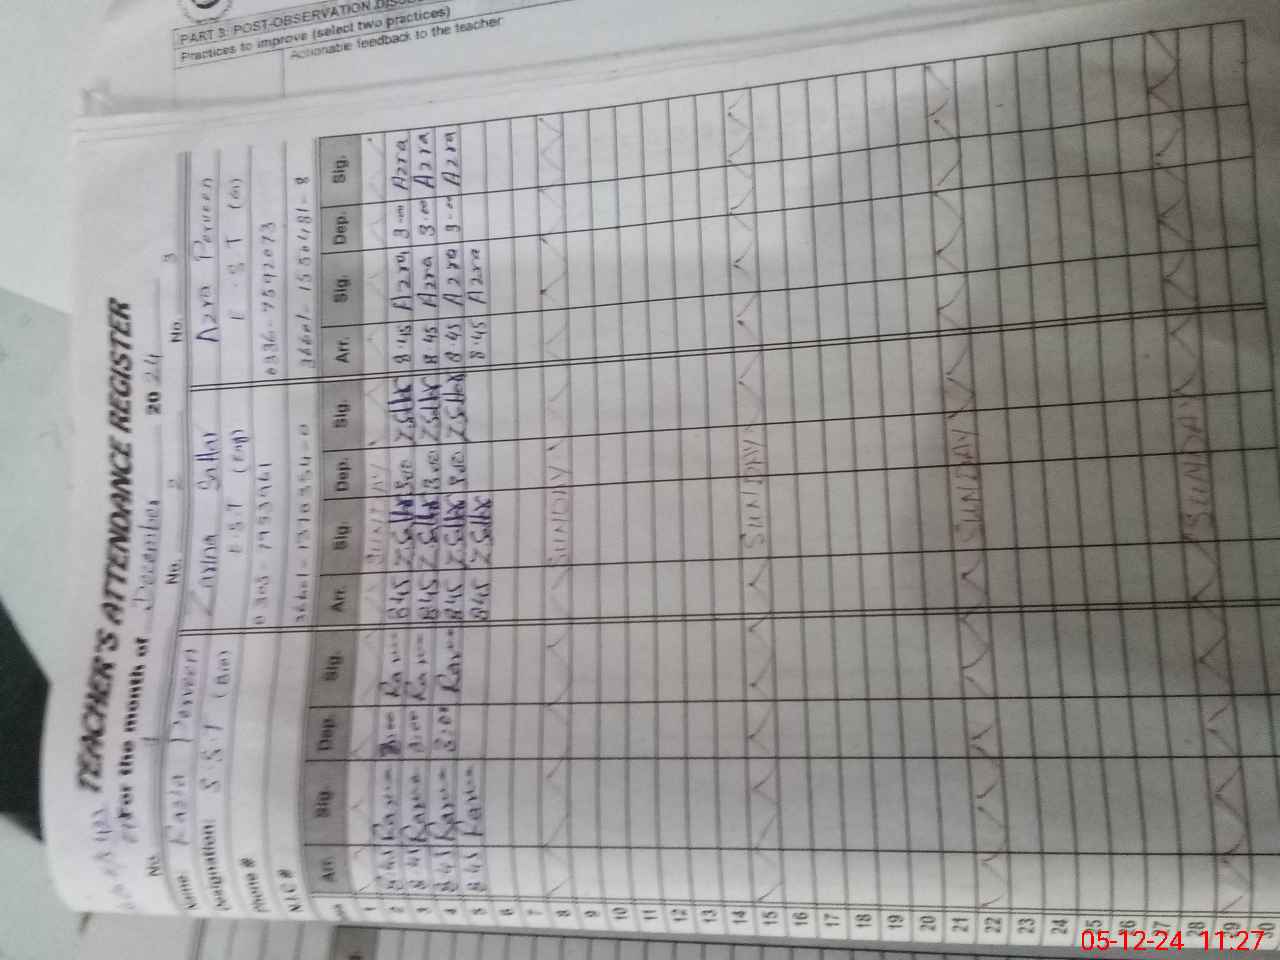 PART 3: POST-OBSERVATION
Practices to improve (select two practices)
Actionable feedback to the teacher
TEACHER'S ATTENDANCE REGISTER
For the month of December 2024
No. 1 No. 2 No. 3
Name Razia Parveen Zarina Sattar Azra Parveen
Designation: S.S.T (Bio) E.S.T (Eng) E.S.T
Phone # 0303-7953961 0336-7592073
N.I.C #
Arr. Sig. Dep. Sig. Arr. Sig. Dep. Sig. Arr. Sig. Dep. Sig.
1 SUNDAY
2 8.45 3:00 8.45 Z Sattar 3:00 Z Sattar 8.45 Azra 3.00 Azra
3 8.45 3:00 8.45 Z Sattar 3:00 Z Sattar 8.45 Azra 3.00 Azra
4 8.45 3:00 8.45 Z Sattar 3:00 Z Sattar 8.45 Azra 3.00 Azra
5 8.45 8.45 Z Sattar 8.45 Azra
6
7
8 SUNDAY
9
10
11
12
13
14
15 SUNDAY
16
17
18
19
20
21
22 SUNDAY
23
24
25
26
27
28
29 SUNDAY
30
05-12-24 11:27